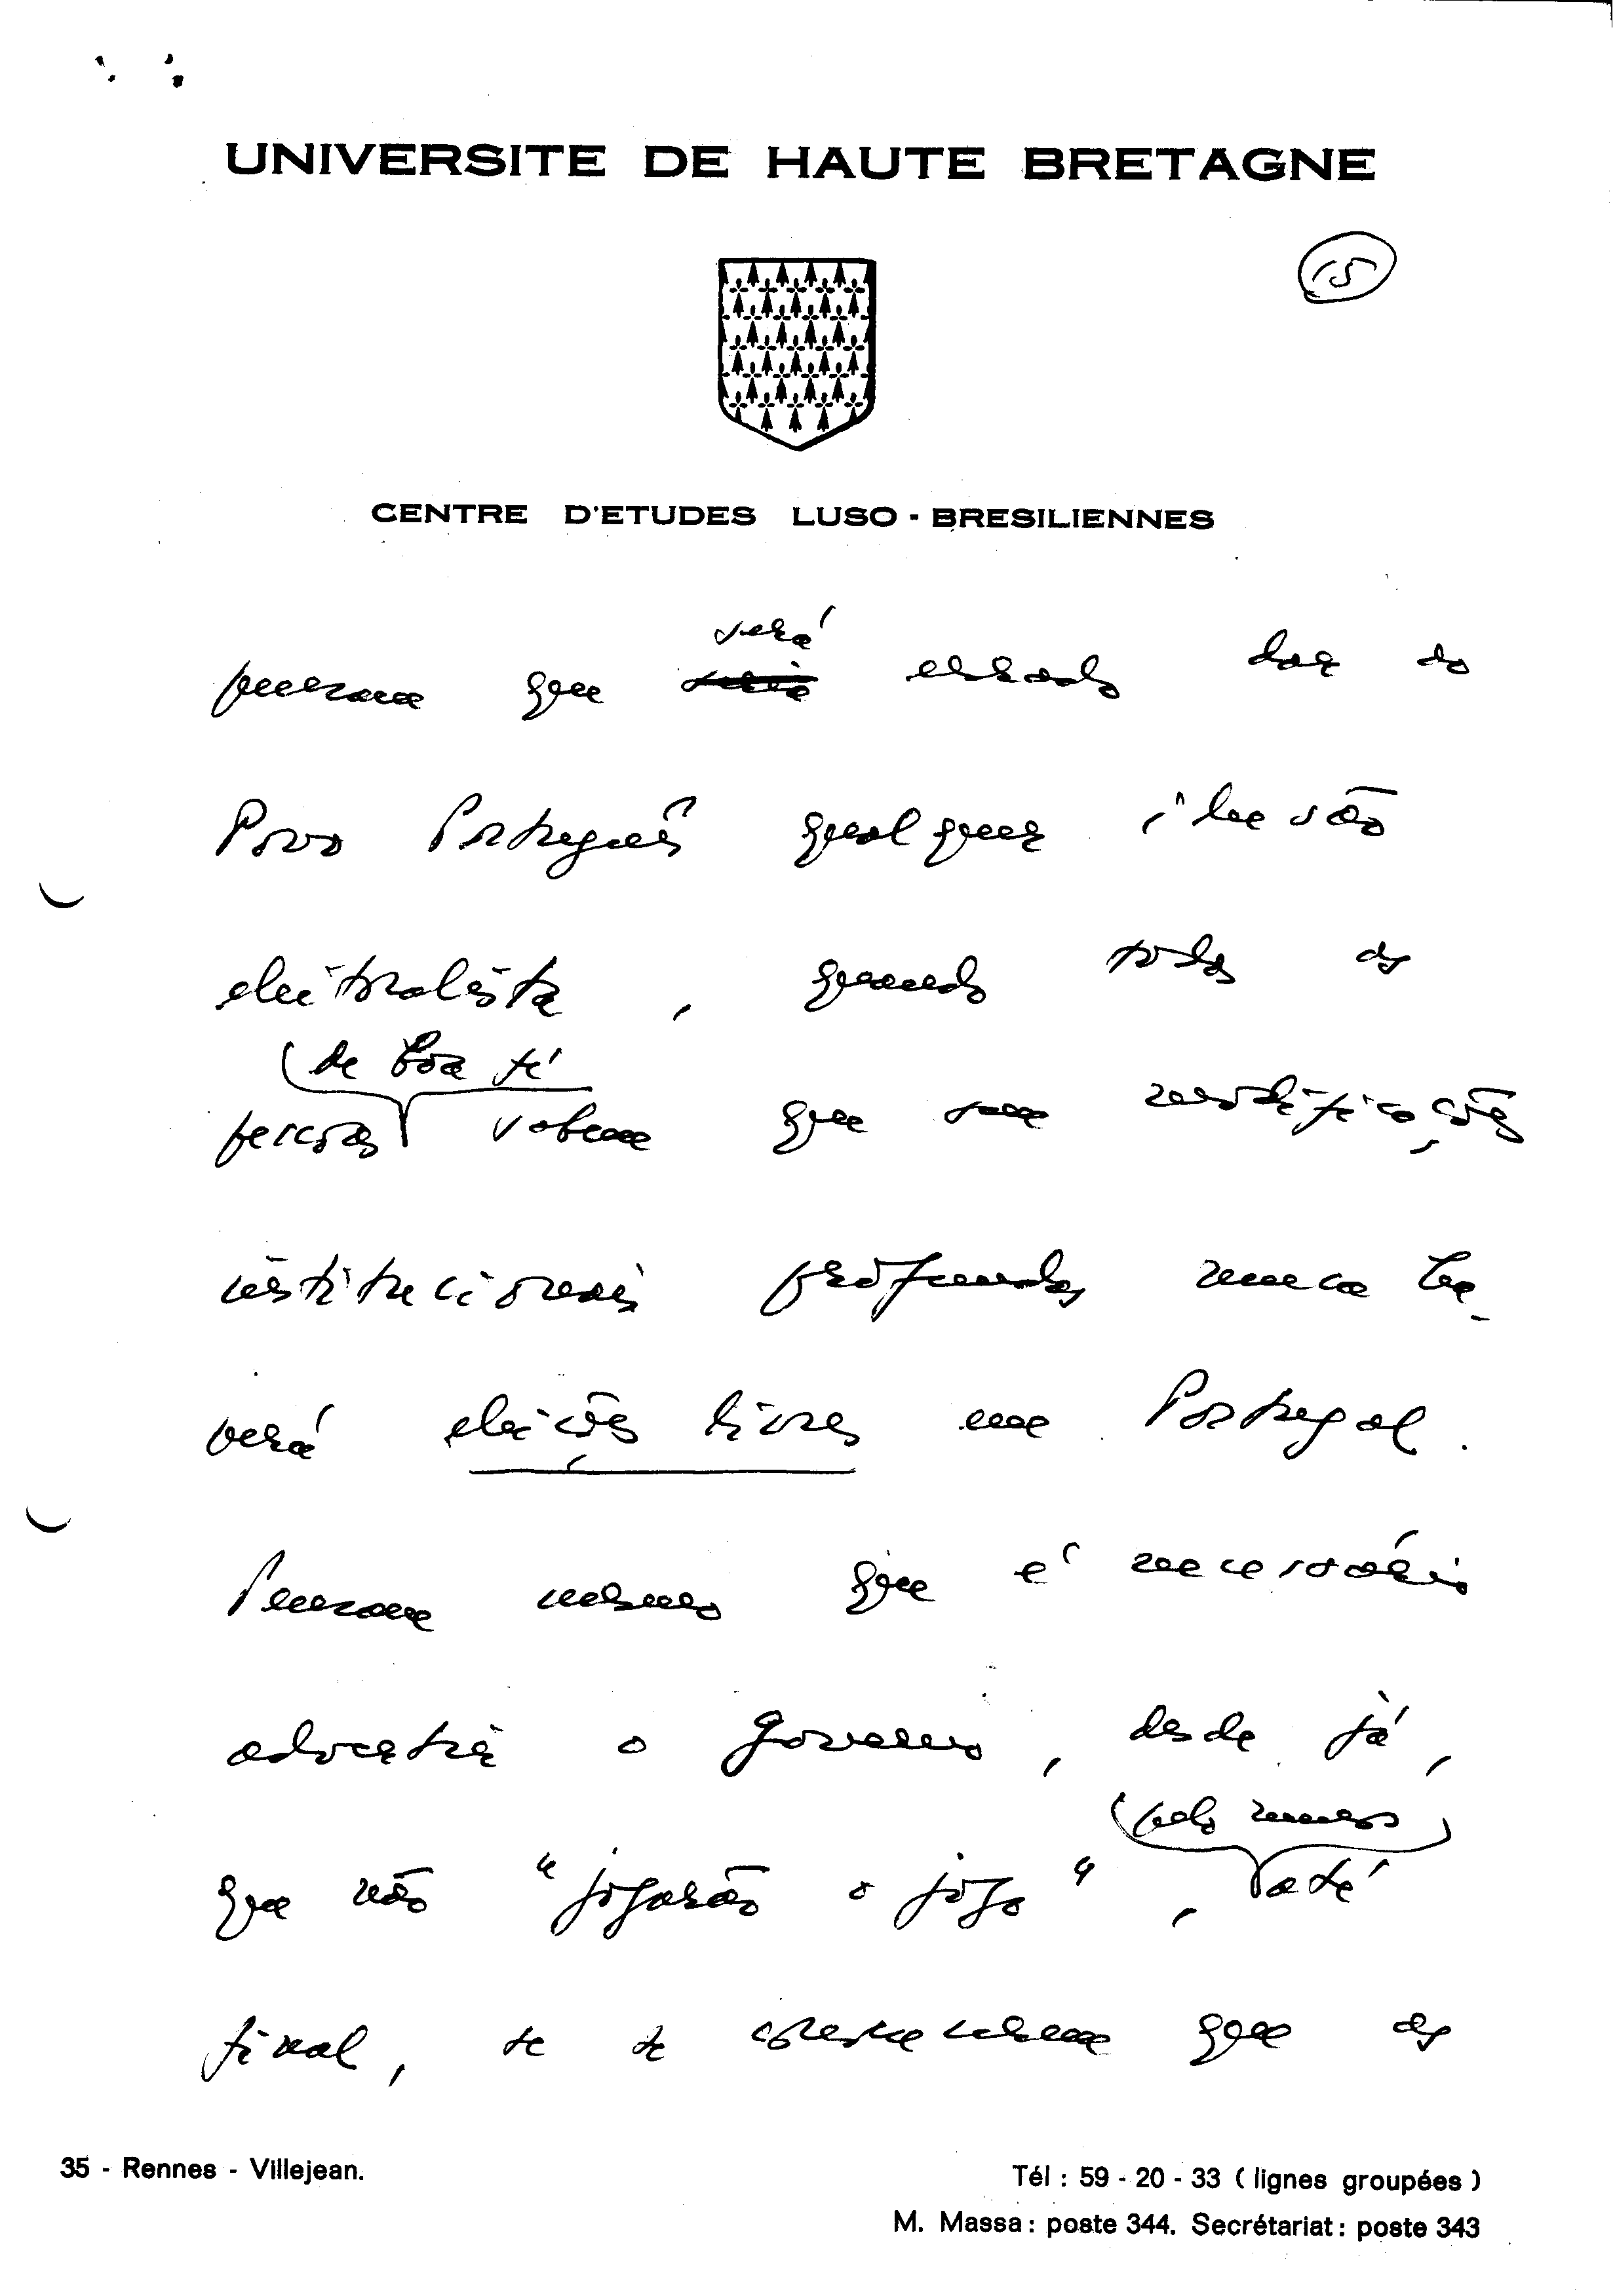 UNIVERSITE DE HAUTE BRETAGNE
15
CENTRE D'ETUDES LUSO - BRESILIENNES
será
pensam que seria errado dar ao
Povo Português qualquer ilusão
eleitoralista, quando todas as
(de boa fé
pessoas sabem que sem modificações
institucionais profundas nunca ha-
verá eleições livres em Portugal.
Pensam mesmo que é necessário
advertir o Governo, desde já,
(pelo menos)
que não "jogarão o jogo", até
final, se se consciencializarem que as
35 - Rennes - Villejean.
Tél : 59 - 20 - 33 ( lignes groupées )
M. Massa : poste 344. Secrétariat : poste 343